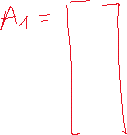 A₁ = [ ]